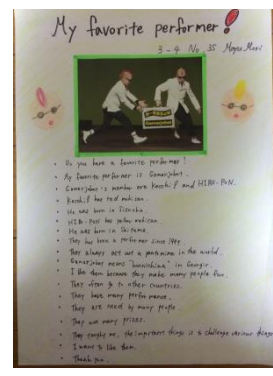 My favorite performer!
3-4 No. 35
Do you have a favorite performer?
My favorite performer is Gamarjobat.
Gamarjobat's member are Ketch! and HIRO-PON.
Ketch! has red mohican.
He was born in
HIRO-PON has yellow mohican.
He was born in Saitama.
They has been a performer since 1999.
They always act out a pantomime in the world.
Gamarjobat means "konnichiwa" in Georgia.
I like them because they make many people fun.
They often go to other countries.
They have many performance.
They are need by many people.
They won many prizes.
They taught me, the important things is to challenge various things.
I want to like them.
Thank you.